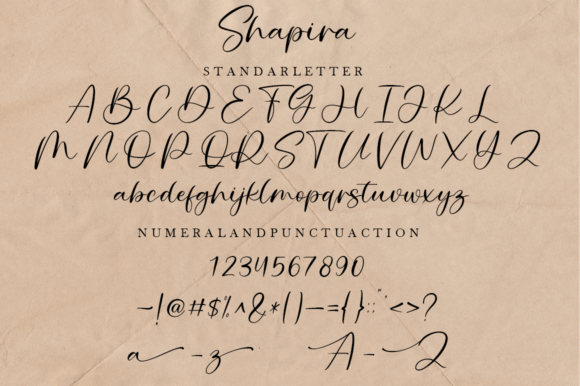 Shapira
STANDARLETTER
A B C D E F G H I J K L
M N O P Q R S T U V W X Y Z
abcdefghijklmopqrstuvwxyz
NUMERALANDPUNCTUACTION
1234567890
–!@#$%^&*()—={}:;"<>?
a - z A - Z